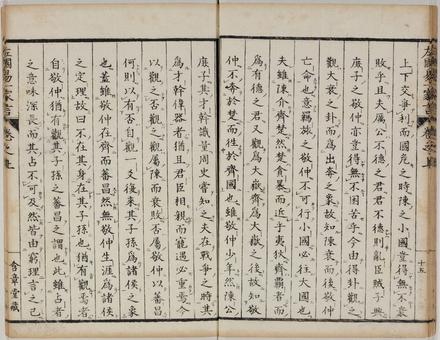 上下交爭利而國危之時陳之小國豈得無不衰
敗乎且夫厲公不德之君君不德則亂臣賊子興
庶子之敬仲亦豈得無不困苦乎今由得卦觀之
觀大衰之卦而爲出奔之象故知陳衰而後敬仲
亡命也意羈旅之敬仲不可行小國必往大國也
夫雖陳介齊楚然楚貪暴而近于夷狄齊霸者而
爲有德之君又觀爲大嶽齊爲大嶽之後故知敬
仲不奔於楚而往於齊國也雖敬仲少年然陳公
庶子其才幹識量周史嘗知之夫在戰爭之時其
爲才幹偉器者猶且君臣相親而寵遇必重焉今
以觀之否觀之觀屬陳而衰敗否屬敬仲以蕃昌
也蓋雖敬仲在齊而蕃昌然無敬仲生涯爲諸侯
何則以有否自觀一爻後來其子孫爲諸侯之象
之定理故曰不在其身在其子孫也猶有觀焉者
自敬仲猶有觀其子孫之蕃昌之謂也此雖占者
之意味深長而其占不可及然皆由窮理言之已
十五
含章堂藏